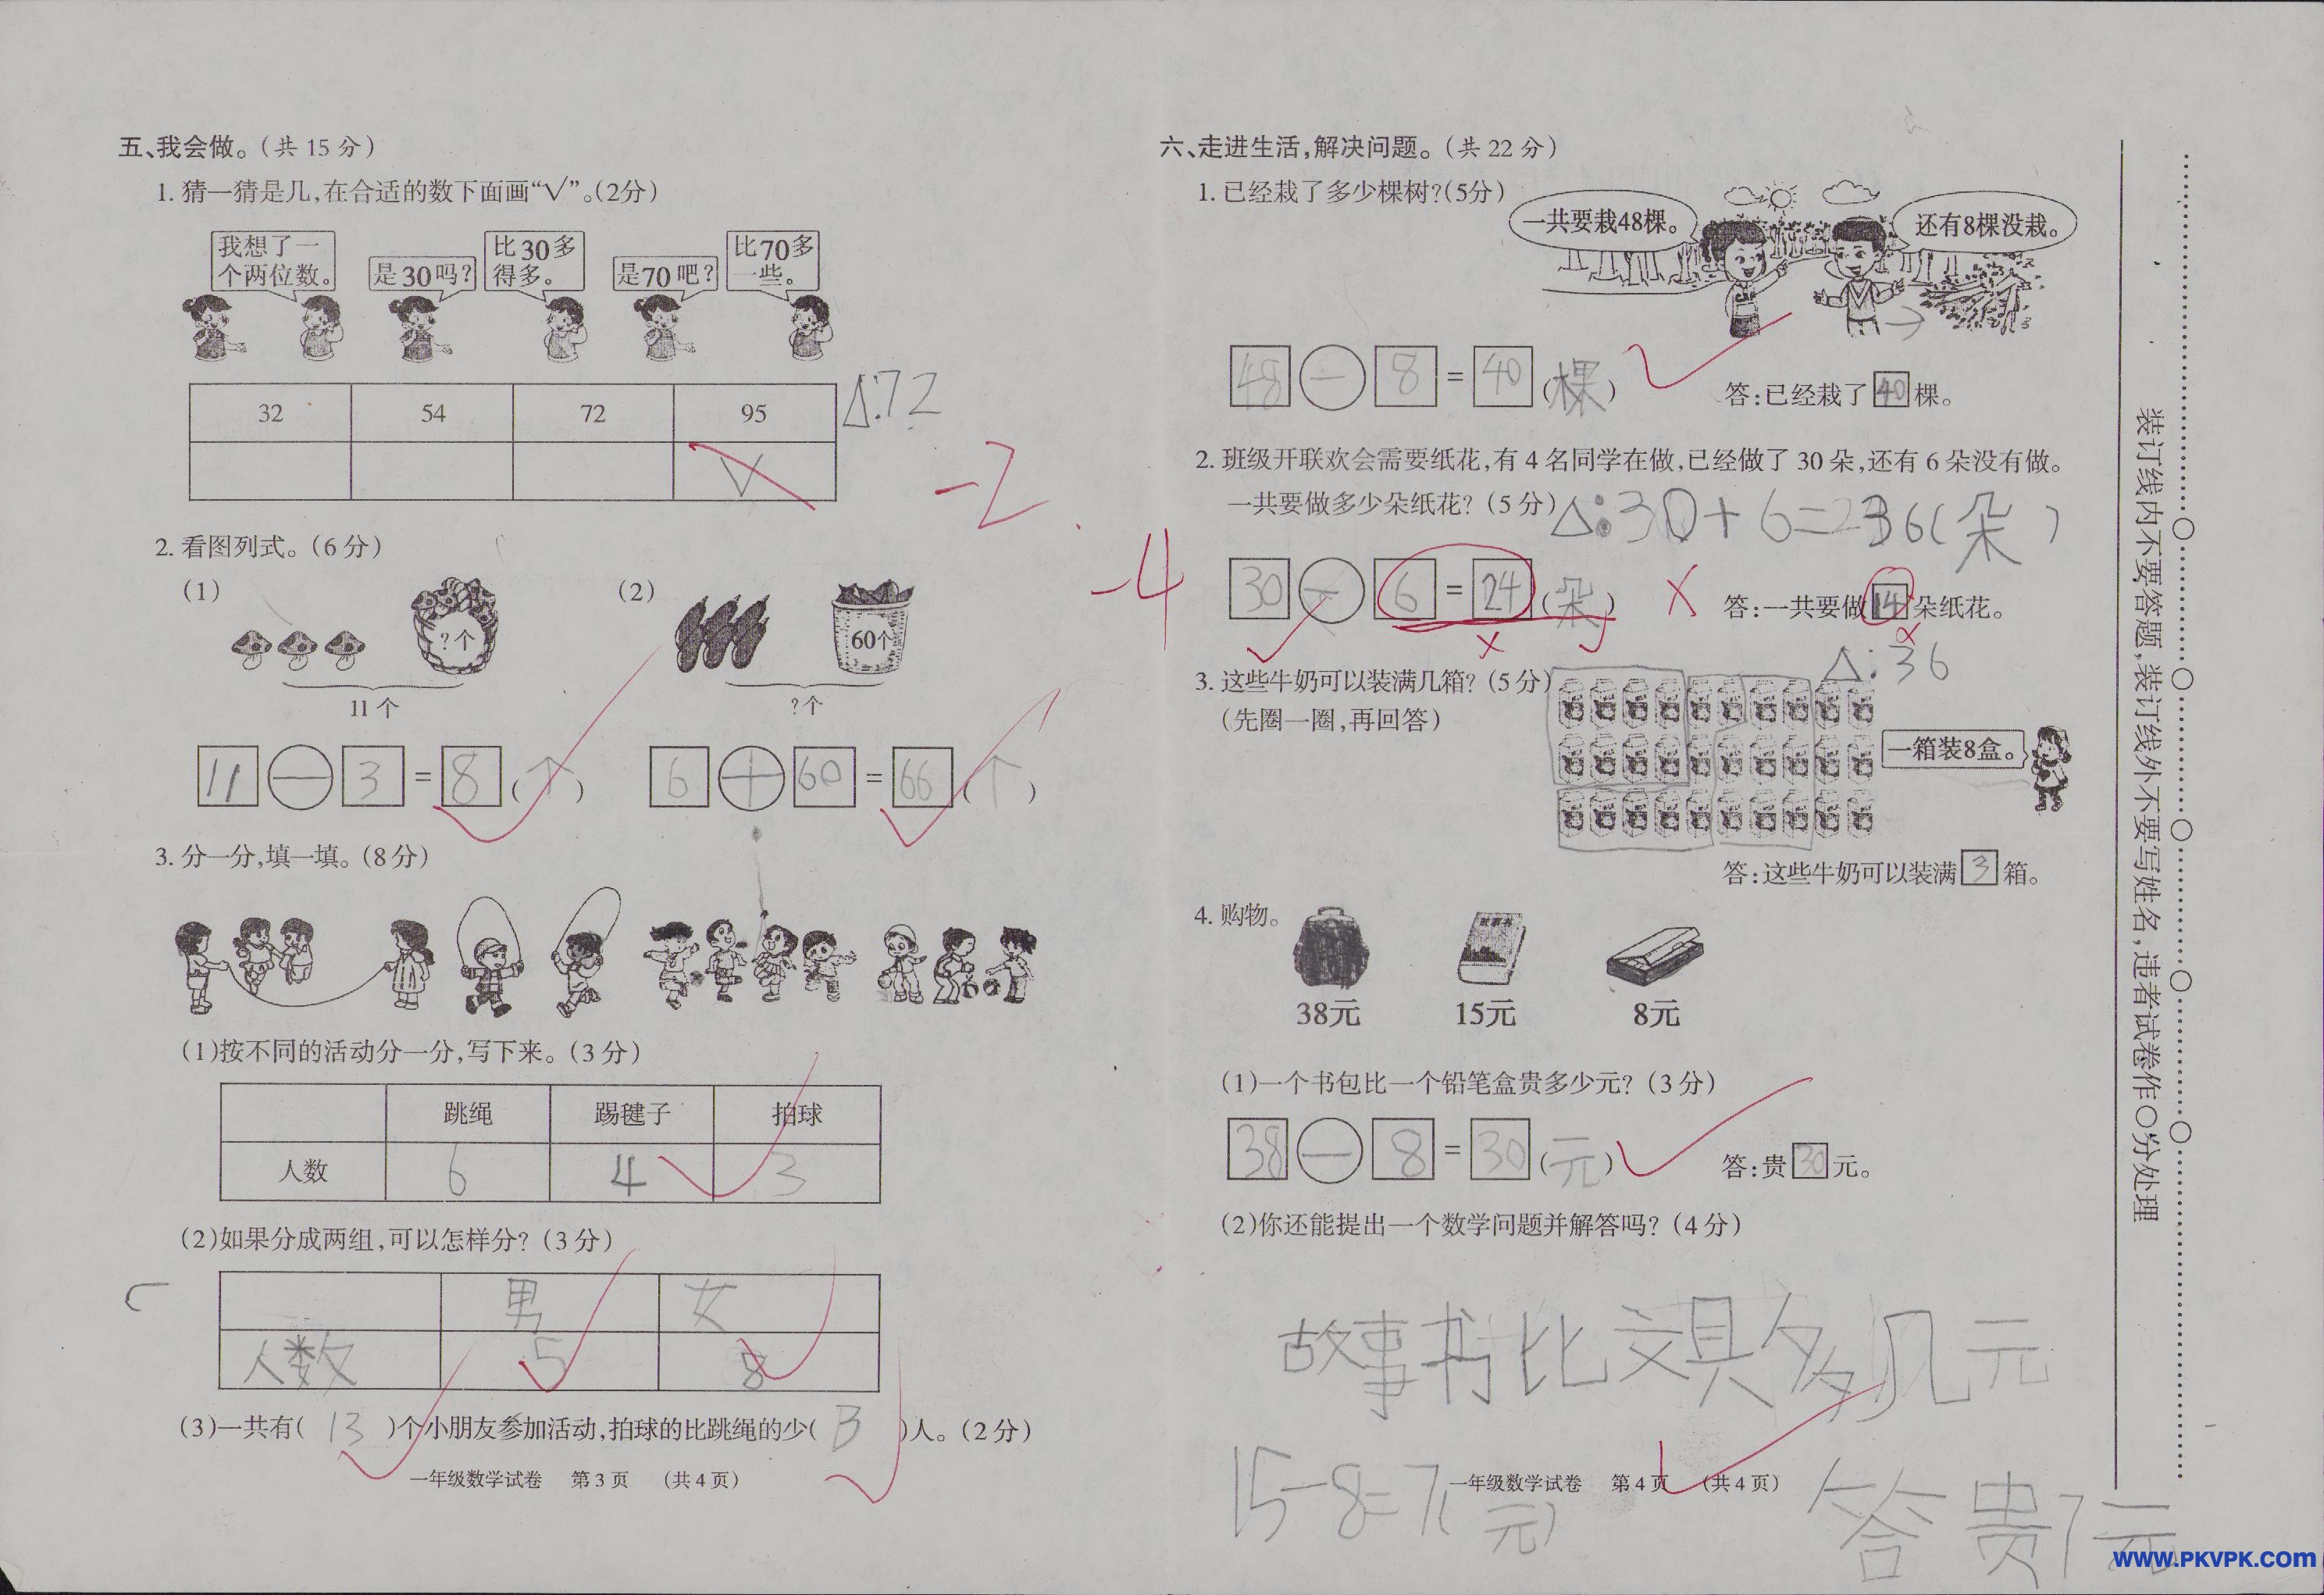 五、我会做。(共 15 分)
1. 猜一猜是几,在合适的数下面画“√”。(2分)
我想了一
个两位数。
是30吗?
比30多
得多。
是70吧?
比70多
一些。
32 54 72 95
√
△:72
-2
2. 看图列式。(6 分)
(1)
?个
11 个
(2)
60个
?个
11 - 3 = 8 (个)
6 + 60 = 66 (个)
3. 分一分,填一填。(8 分)
(1)按不同的活动分一分,写下来。(3 分)
跳绳 踢毽子 拍球
人数 6 4 3
(2)如果分成两组,可以怎样分?(3 分)
男 女
人数 5 8
(3)一共有( 13 )个小朋友参加活动,拍球的比跳绳的少( 3 )人。(2 分)
一年级数学试卷 第 3 页 (共 4 页)
六、走进生活,解决问题。(共 22 分)
1. 已经栽了多少棵树?(5分)
一共要栽48棵。
还有8棵没栽。
48 - 8 = 40 (棵)
答:已经栽了 40 棵。
2. 班级开联欢会需要纸花,有 4 名同学在做,已经做了 30 朵,还有 6 朵没有做。
一共要做多少朵纸花?(5 分)
△:30+6=36(朵)
-4
30 - 6 = 24 (朵)
答:一共要做 14 朵纸花。
△:36
3. 这些牛奶可以装满几箱?(5 分)
(先圈一圈,再回答)
一箱装8盒。
答:这些牛奶可以装满 3 箱。
4. 购物。
38元 15元 8元
(1)一个书包比一个铅笔盒贵多少元?(3 分)
38 - 8 = 30 (元)
答:贵 30 元。
(2)你还能提出一个数学问题并解答吗?(4 分)
故事书比文具多几元
15-8=7(元)
答贵7元
一年级数学试卷 第 4 页 (共 4 页)
装订线内不要答题,装订线外不要写姓名,违者试卷作〇分处理
WWW.PKVPK.COM